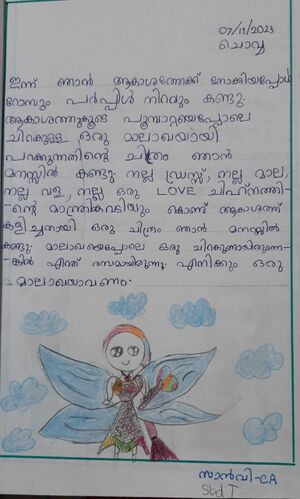 07/11/2023
ചൊവ്വ
ഇന്ന് ഞാൻ ആകാശത്തേക്ക് നോക്കിയപ്പോൾ
റോസും പർപ്പിൾ നിറവും കണ്ടു.
ആകാശത്തുകൂടെ പൂമ്പാറ്റയെപ്പോലെ
ചിറകുള്ള ഒരു മാലാഖയായി
പറക്കുന്നതിന്റെ ചിത്രം ഞാൻ
മനസ്സിൽ കണ്ടു. നല്ല ഡ്രസ്സ്, നല്ല മാല,
നല്ല വള, നല്ല ഒരു LOVE ചിഹ്നത്തി-
-ന്റെ മാന്ത്രികവടിയും കൊണ്ട് ആകാശത്ത്
കളിച്ചതായി ഒരു ചിത്രം ഞാൻ മനസ്സിൽ
കണ്ടു. മാലാഖയെപ്പോലെ ഒരു ചിറകുണ്ടായിരുന്ന-
-ങ്കിൽ എന്ത് രസമായിരുന്നു. എനിക്കും ഒരു
മാലാഖയാവണം.
സാൻവി-CA
Std I